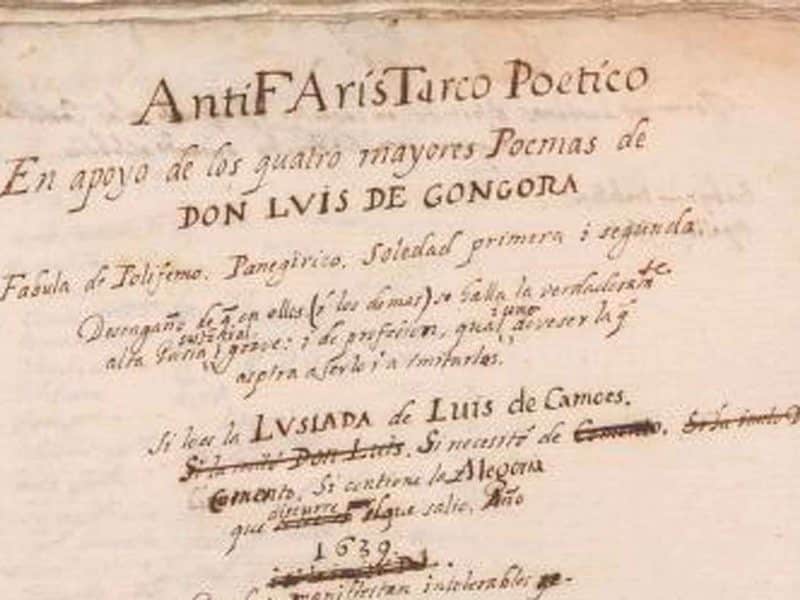 AntiFArísTarco Poetíco
En apoyo de los quatro mayores Poemas de
DON LVIS DE GONGORA
Fabula de Polifemo. Panegirico. Soledad primera i segunda.
Desengaño de q̃ en ellos (i los demas) se halla la verdaderamte.
alta Poesia i grave: i de profesion, qual deve ser la q̃
aspira a serlo i a imitarlos.
Si loes la LVSIADA de LUIS de Camoes.
Si la imitó Don Luis. Si necesitó de Comento. Si la imitó
Comento. Si contiene la Alegoria
que discurre el que salio. Año
1639.
manifiestan intolerables